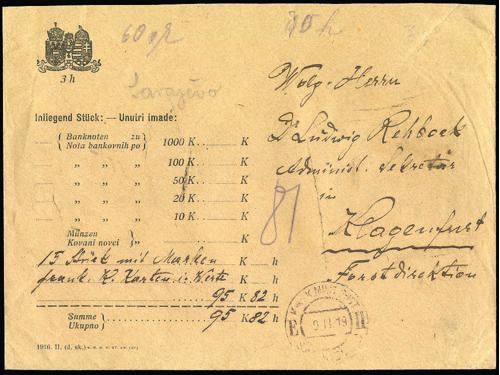 60 h
3 h
Sarajevo
Inliegend Stück: — Unutri imade:
Banknoten zu
Nota bankovnih po
1000 K K
„ „ „ 100 K K
„ „ „ 50 K K
„ „ „ 20 K K
„ „ „ 10 K K
Münzen
Kovani novci
K
13 Stück mit Marken K h
frank. K. Karten i. Werte K h
95 K 82 h
Summe
Ukupno
95 K 82 h
1916. II. (d. sk.)
Wolg. Herrn
Dr Ludwig Rehbock
Administ. Sekretär
in
Klagenfurt
Forstdirektion
81